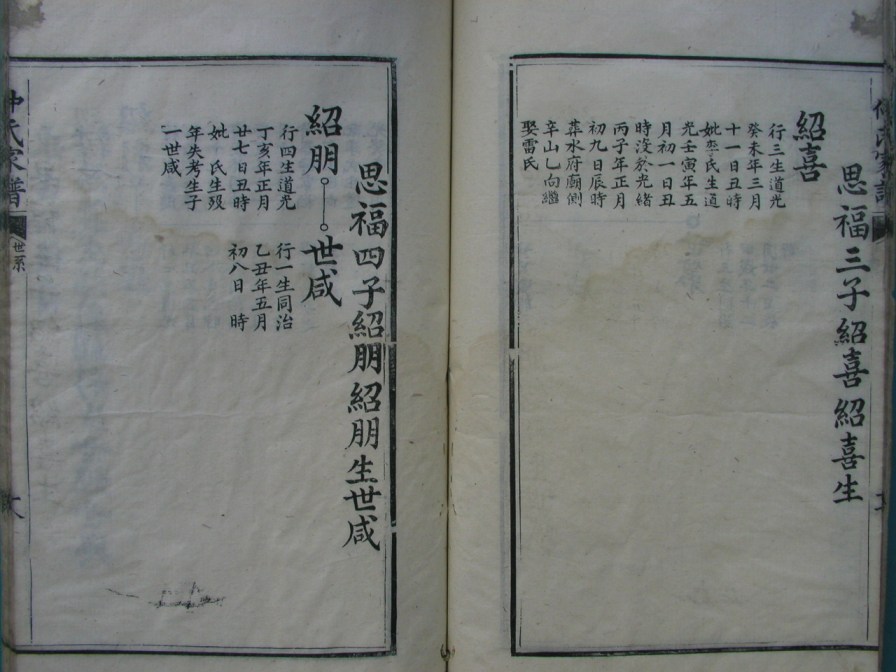 思福三子紹喜紹喜生
紹喜
行三生道光
癸未年三月
十一日丑時
妣焦氏生道
光壬寅年五
月初一日丑
時沒於光緒
丙子年正月
初九日辰時
葬水府廟側
辛山乚向繼
娶雷氏
思福四子紹朋紹朋生世咸
紹朋
行四生道光
丁亥年正月
廿七日丑時
妣 氏生歿
年失考生子
一世咸
世咸
行一生同治
乙丑年五月
初八日 時
仲氏家譜
世系